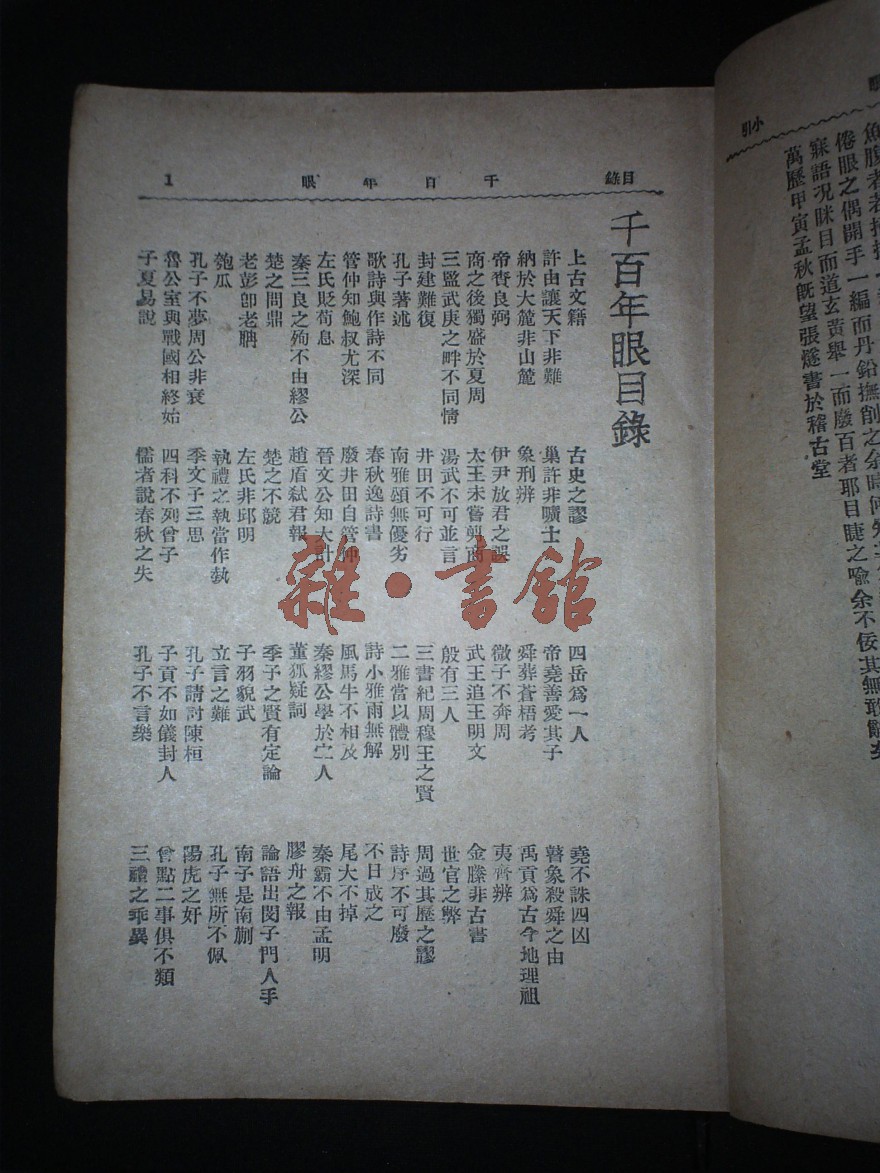 小引
倦眼之偶開手一編而丹鉛撫削之余時
寐語况眯目而道玄黃舉一而廢百者耶目睫之喩余不佞其無敢辭矣
萬歷甲寅孟秋旣望張燧書於稽古堂
目錄 千百年眼 1
千百年眼目錄
上古文籍 古史之謬 四岳爲一人 堯不誅四凶
許由讓天下非難 巢許非曠士 帝堯善愛其子 瞽象殺舜之由
納於大麓非山麓 象刑辨 舜葬蒼梧考 禹貢爲古今地理祖
帝賚良弼 伊尹放君之誤 微子不奔周 夷齊辨
商之後獨盛於夏周 太王未嘗翦商 武王追王明文 金縢非古書
三監武庚之畔不同情 湯武不可並言 殷有三人 世官之弊
封建難復 井田不可行 三書紀周穆王之賢 周過其歷之謬
孔子著述 南雅頌無優劣 二雅當以體別 詩序不可廢
歌詩與作詩不同 春秋逸詩書 詩小雅雨無解 不日成之
管仲知鮑叔尤深 廢井田自管仲 風馬牛不相及 尾大不掉
左氏貶荀息 晉文公知大計 秦繆公學於宁人 秦霸不由孟明
秦三良之殉不由繆公 趙盾弑君報 董狐疑詞 膠舟之報
楚之問鼎 楚之不競 季子之賢有定論 論語出閔子門人手
老彭卽老聃 左氏非邱明 子羽貌武 南子是南蒯
匏瓜 執禮之執當作埶 立言之難 孔子無所不佩
孔子不夢周公非衰 季文子三思 孔子請討陳桓 陽虎之奸
魯公室與戰國相終始 四科不列曾子 子貢不如儀封人 曾點二事俱不類
子夏易說 儒者說春秋之失 孔子不言樂 三禮之乖異
雜·書館